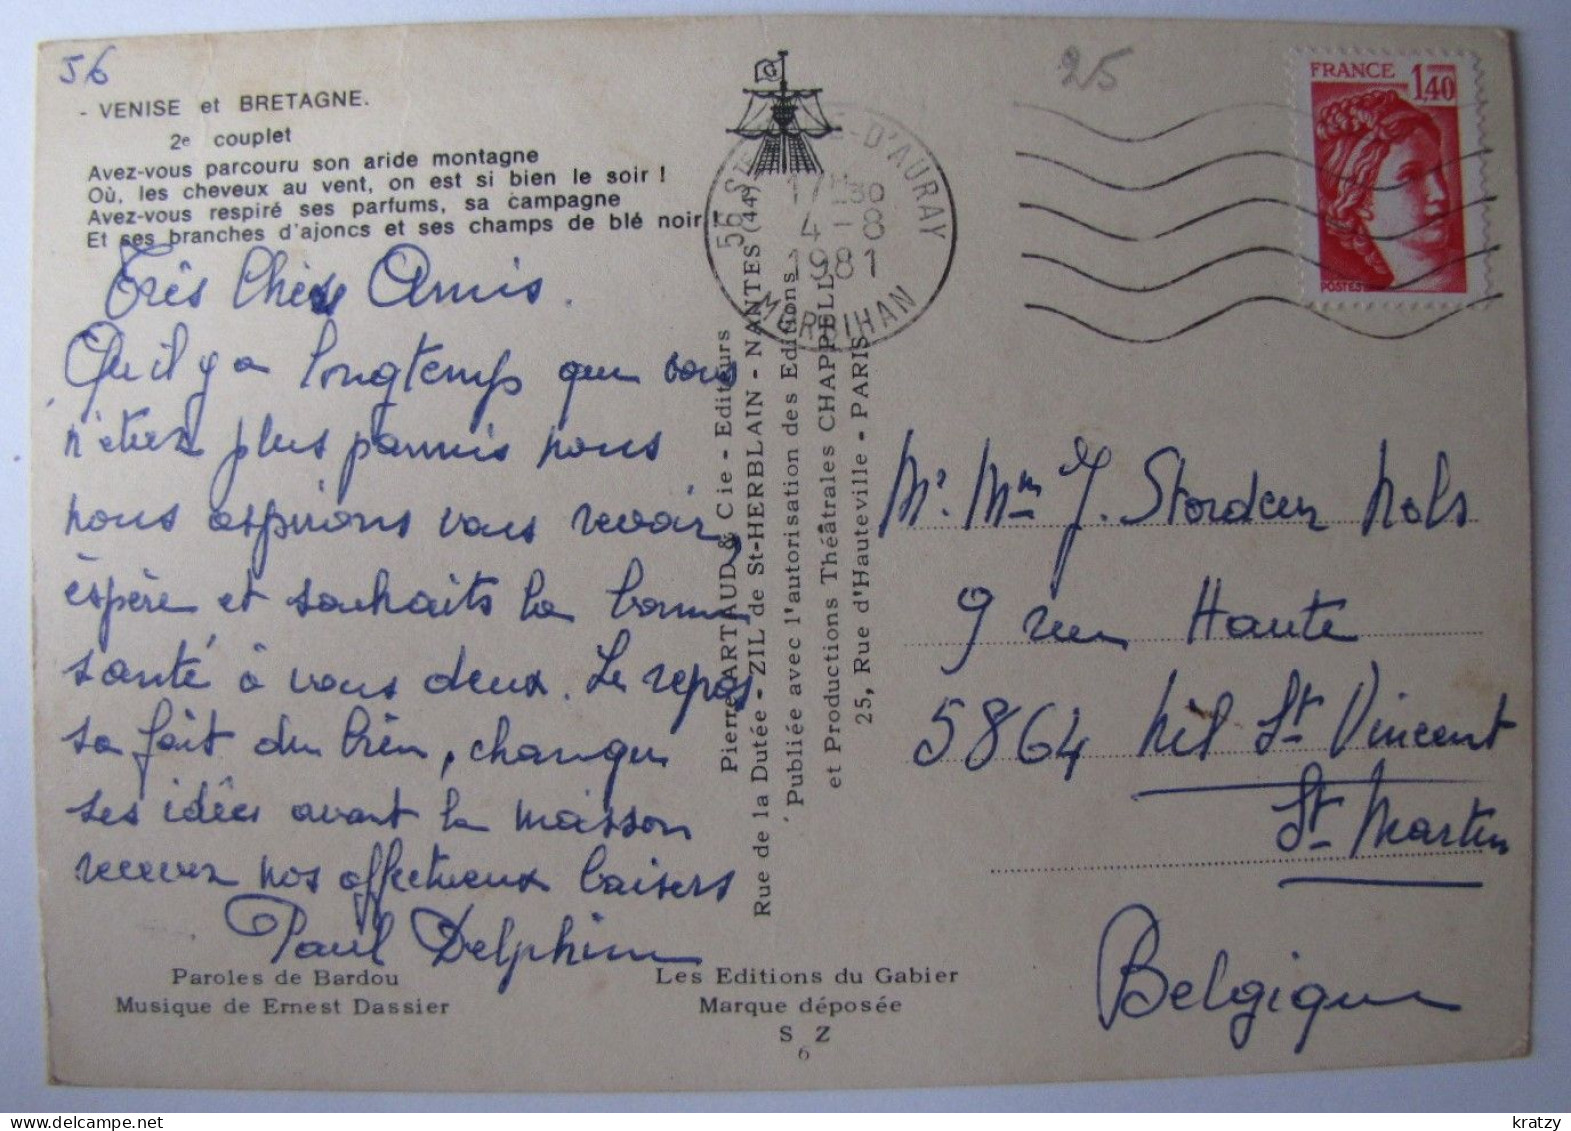 56
- VENISE et BRETAGNE.
2e couplet
Avez-vous parcouru son aride montagne
Où, les cheveux au vent, on est si bien le soir !
Avez-vous respiré ses parfums, sa campagne
Et ses branches d'ajoncs et ses champs de blé noir !
Très Chers Amis.
Qu'il y a longtemps que vous
n'étiez plus parmis nous
nous aspirons vous revoir,
espère et souhaits la bonne
santé à vous deux. Le repos
sa fait du bien, changer
ses idées avant la maisson
recevez nos affectueux baisers
Paul Delphine
Paroles de Bardou
Musique de Ernest Dassier
Pierre ARTAUD & Cie - Editeurs
Rue de la Dutée - ZIL de St-HERBLAIN - NANTES (44)
Publiée avec l'autorisation des Editions
et Productions Théâtrales CHAPPELL,
25, Rue d'Hauteville - PARIS
Les Editions du Gabier
Marque déposée
S Z
6
G
56 STE D'AURAY
17 H 30
4 - 8
1981
MORBIHAN
25
FRANCE 1,40
POSTES
Mr. Mm J. Stordeur Nols
9 rue Haute
5864 Nil St Vincent
St Martin
Belgique
kratzy